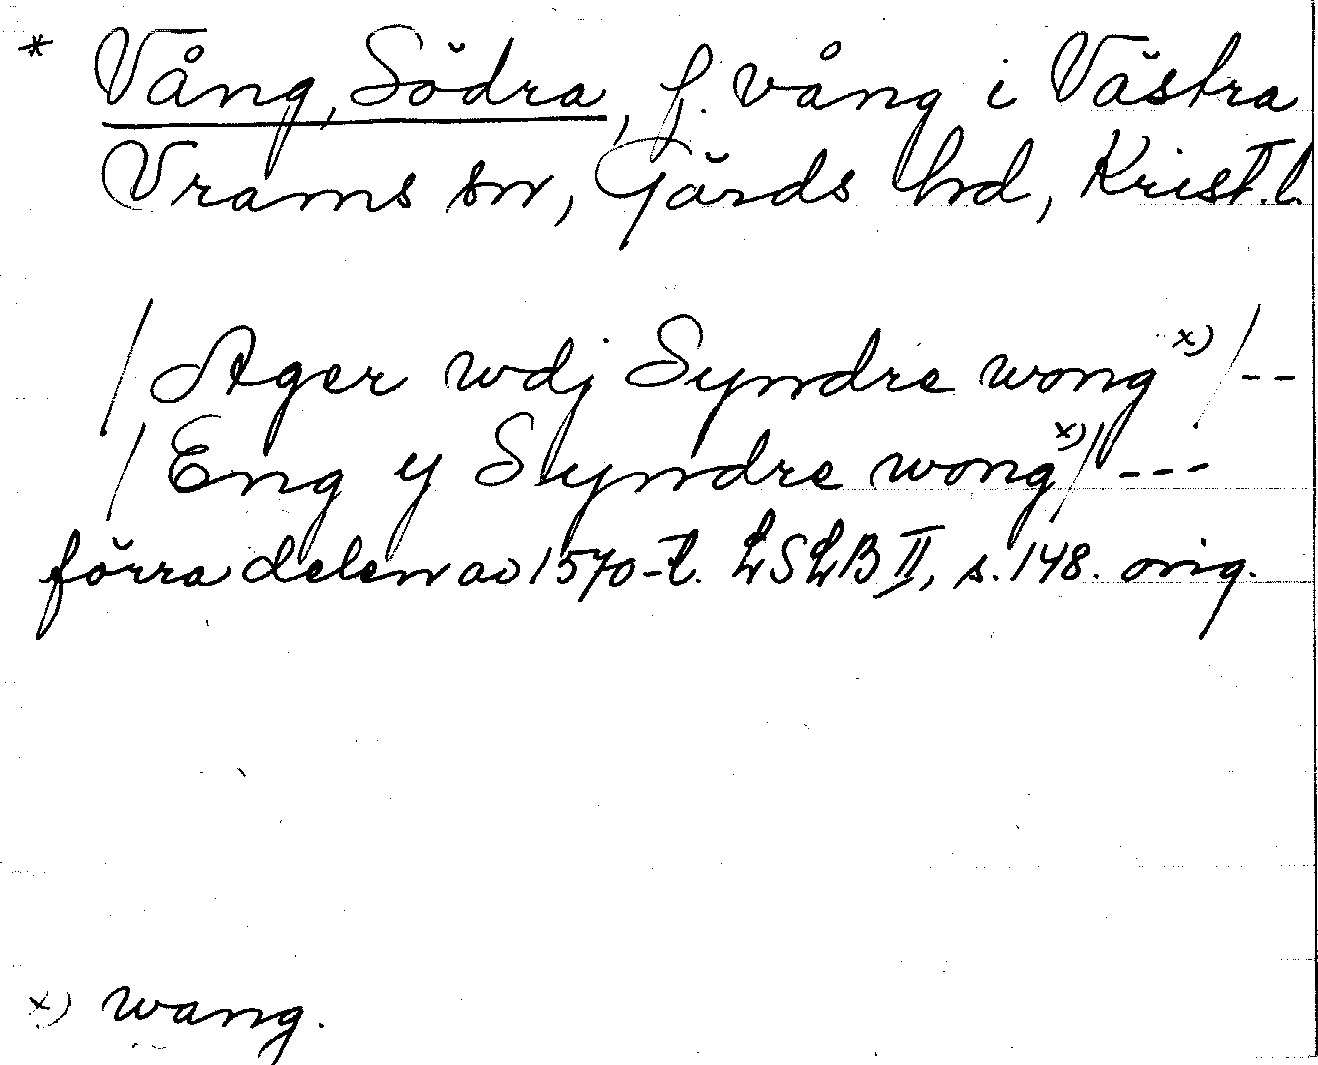 * Vång, Södra, f. vång i Västra
Vrams sn, Gärds hd, Krist. l.
/Ager wdj Syndre wong x)/--
/Eng y Syndre wong x)/---
förra delen av 1570-t. LSLB II, s. 148. orig.
x) wang.